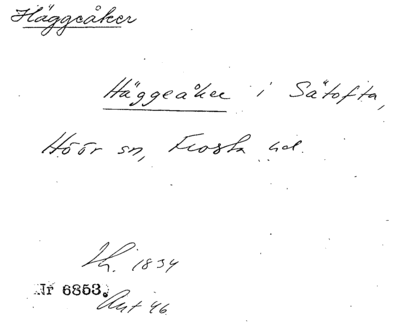 Häggeåker
Häggeåker i Sätofta,
Höör sn, Frosta hd.
1834
Nr 6853.